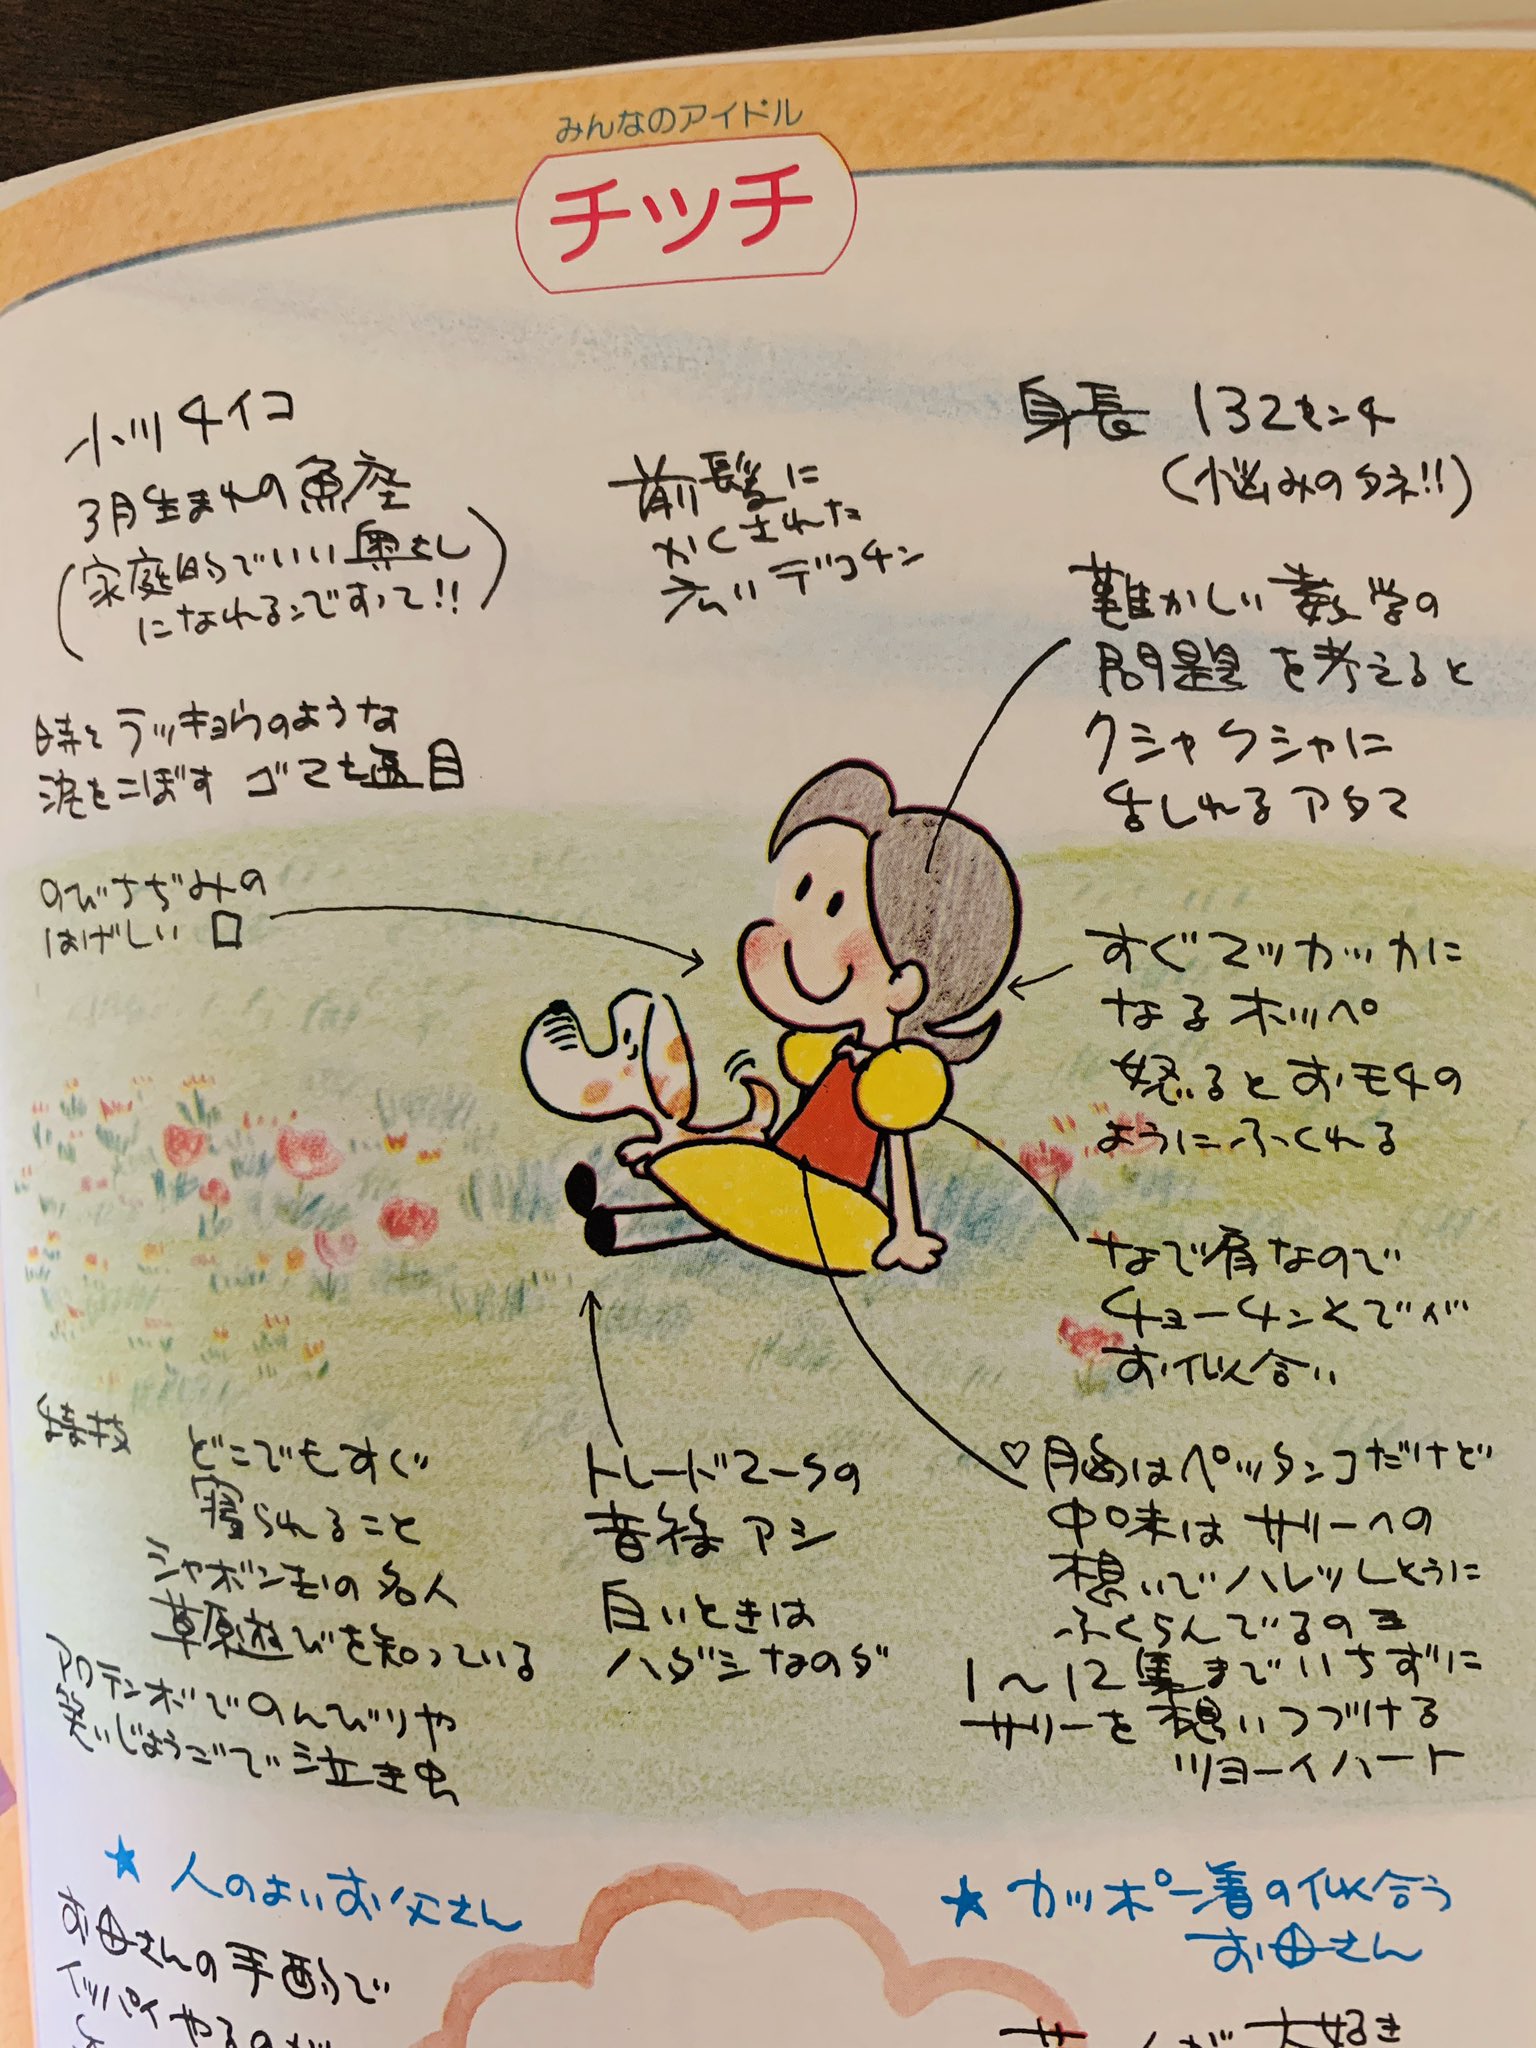 みんなのアイドル
チッチ
小川チイコ
3月生まれの魚座
(家庭的でいい奥さん
になれるンですって!!)
前髪に
かくされた
広いデコチン
身長 132センチ
(悩みのタネ!!)
難かしい数学の
問題を考えると
クシャクシャに
なしれるアタマ
時々ラッキョウのような
涙をこぼす ゴマも豆目
のびちぢみの
はげしい口
すぐマッカッカに
なるホッペ
怒るとおモチの
ようにふくれる
なで肩なので
チョーチンそでが
お似合い
特技 どこでもすぐ
寝られること
シャボン玉の名人
草原遊びを知っている
アクテンポでのんびりや
笑いじょうごで泣き虫
トレードマークの
音符アシ
白いときは
ハダシなのダ
♡胸はペッタンコだけど
中味はサリーへの
想いでハレツしそうに
ふくらんでいるのヨ
1〜12集までいちずに
サリーを想いつづける
ツヨーイハート
★人のよいお父さん
お母さんの手酌で
イッパイやるのが
★カッポー着の似合う
お母さん
大好き